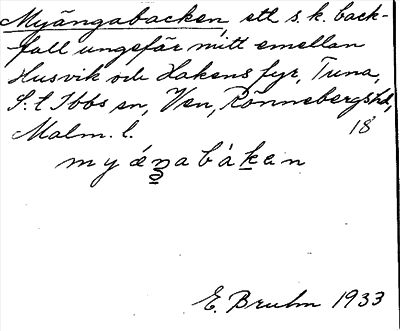 Myängabacken, ett s.k. back-
fall ungefär mitt emellan
Husvik och Hakens fyr, Tuna,
S:t Ibbs sn, Ven, Rönnebergs hd,
Malm. l. 18
E. Bruhn 1933